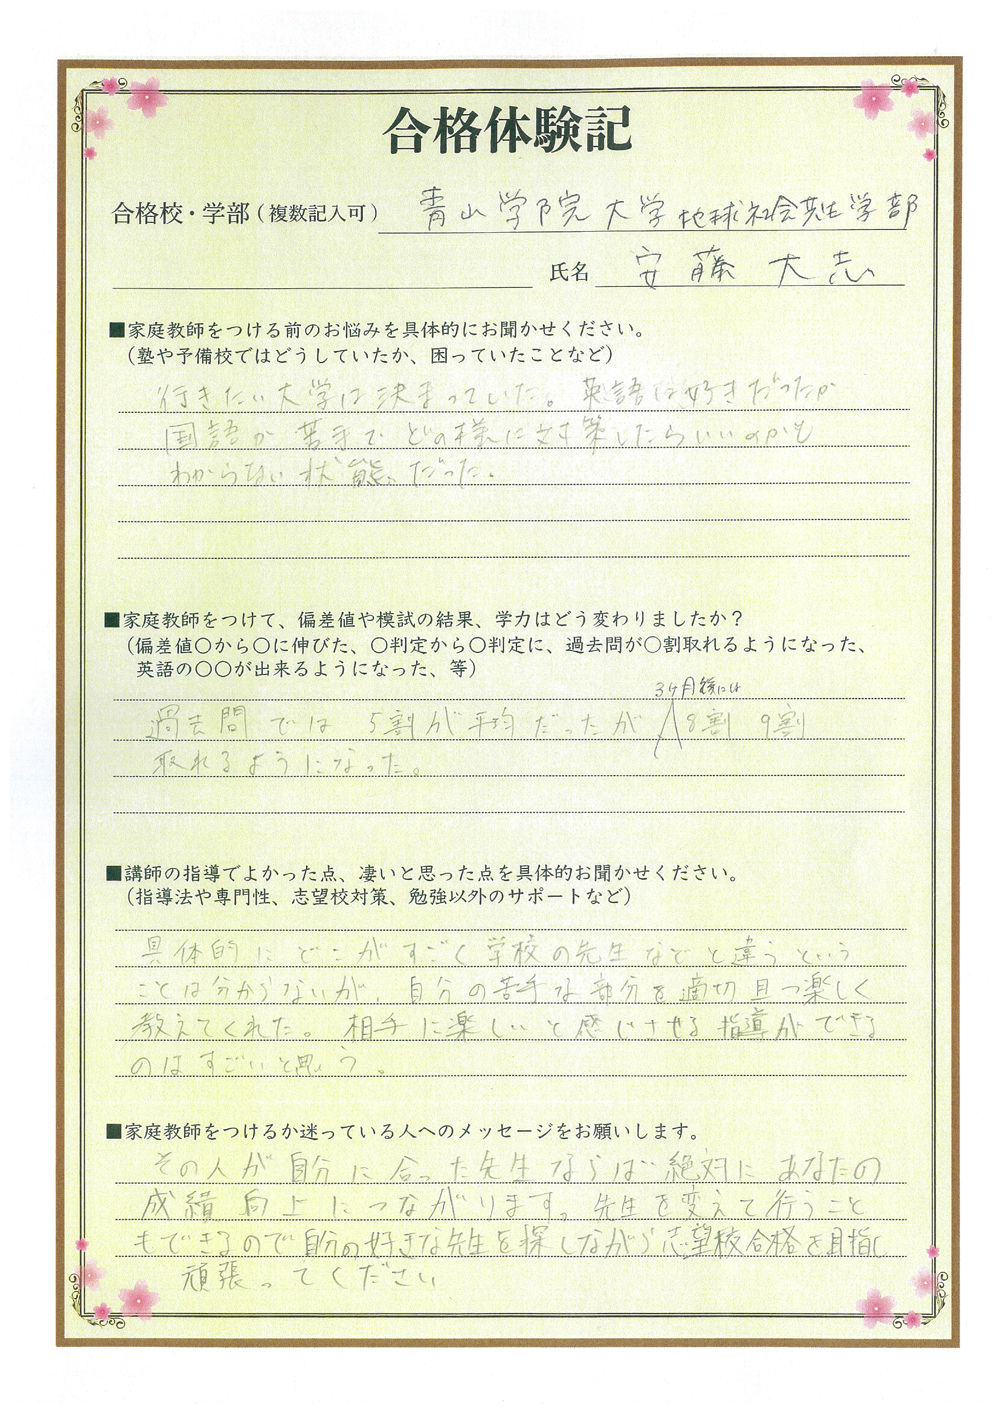 合格体験記
合格校・学部（複数記入可） 青山学院大学 地球社会共生学部
氏名 安藤 大志
■家庭教師をつける前のお悩みを具体的にお聞かせください。
（塾や予備校ではどうしていたか、困っていたことなど）
行きたい大学は決まっていた。英語は好きだったが
国語が苦手でどの様に対策したらいいのかも
わからない状態だった。
■家庭教師をつけて、偏差値や模試の結果、学力はどう変わりましたか？
（偏差値〇から〇に伸びた、〇判定から〇判定に、過去問が〇割取れるようになった、
英語の〇〇が出来るようになった、等）
3ヶ月後には
過去問では 5割が平均だったが 8割 9割
取れるようになった。
■講師の指導でよかった点、凄いと思った点を具体的お聞かせください。
（指導法や専門性、志望校対策、勉強以外のサポートなど）
具体的にどこがすごく学校の先生などと違うという
ことは分からないが、自分の苦手な部分を適切且つ楽しく
教えてくれた。相手に楽しいと感じさせる指導ができる
のはすごいと思う。
■家庭教師をつけるか迷っている人へのメッセージをお願いします。
その人が自分に合った先生ならば絶対にあなたの
成績向上につながります。先生を変えて行うこと
もできるので自分の好きな先生を探しながら志望校合格を目指し
頑張ってください